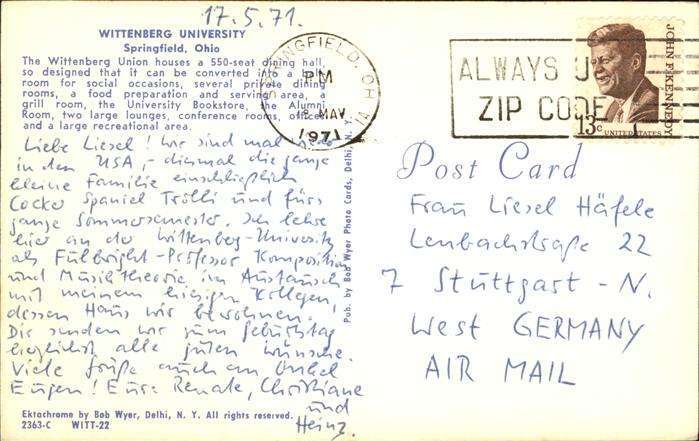 17.5.71.
WITTENBERG UNIVERSITY
Springfield, Ohio
The Wittenberg Union houses a 550-seat dining hall,
so designed that it can be converted into a
room for social occasions, several private dining
rooms, a food preparation and serving area, a
grill room, the University Bookstore, the Alumni
Room, two large lounges, conference rooms, offices
and a large recreational area.
Liebe Liesel! Wir sind mal
in den USA, diesmal die ganze
kleine Familie einschließlich
Cocker Spaniel Trolli und fürs
ganze Sommersemester. Ich lehre
hier an der Wittenberg-University
als Fullbright-Professor Komposition
und Musiktheorie im Austausch
mit meinem hiesigen Kollegen,
dessen Haus wir bewohnen.
Dir senden wir zum Geburtstag
herzlichst alle guten Wünsche.
Viele Grüße auch an Onkel
Eugen! Eure Renate, Christiane
und
Heinz.
Ektachrome by Bob Wyer, Delhi, N. Y. All rights reserved.
2363-C WITT-22
Pub. by Bob Wyer Photo Cards, Delhi, N. Y.
SPRINGFIELD, OH
PM
MAY
1971
ALWAYS U
ZIP CODE
JOHN F. KENNEDY
13c UNITED STATES
Post Card
Frau Liesel Häfele
Lenbachstraße 22
7 Stuttgart-N.
West GERMANY
AIR MAIL